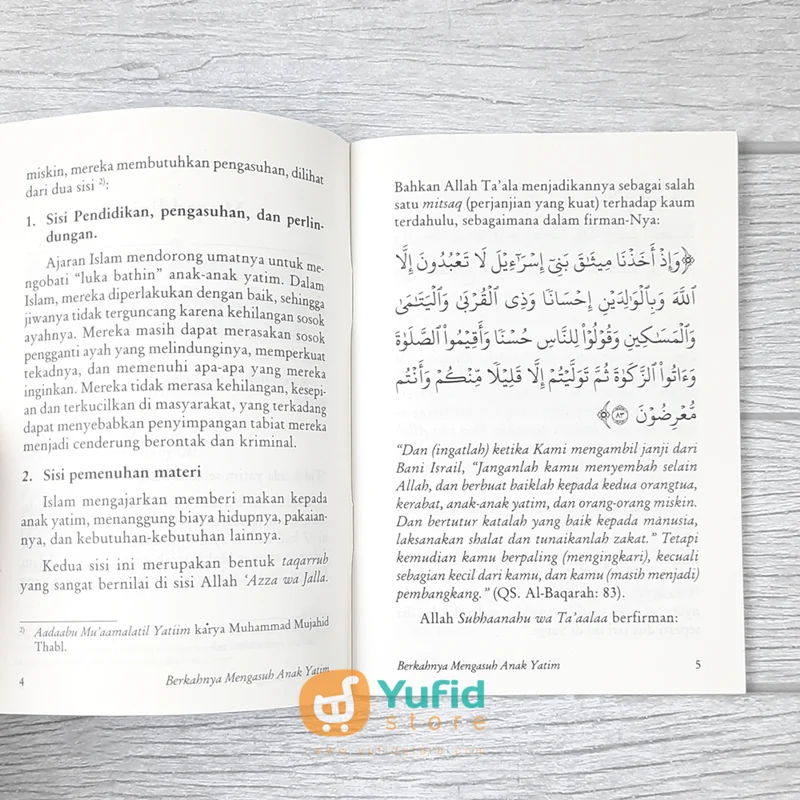 miskin, mereka membutuhkan pengasuhan, dilihat
dari dua sisi 2):
1. Sisi Pendidikan, pengasuhan, dan perlin-
dungan.
Ajaran Islam mendorong umatnya untuk me-
ngobati “luka bathin” anak-anak yatim. Dalam
Islam, mereka diperlakukan dengan baik, sehingga
jiwanya tidak terguncang karena kehilangan sosok
ayahnya. Mereka masih dapat merasakan sosok
pengganti ayah yang melindunginya, memperkuat
tekadnya, dan memenuhi apa-apa yang mereka
inginkan. Mereka tidak merasa kehilangan, kesepi-
an dan terkucilkan di masyarakat, yang terkadang
dapat menyebabkan penyimpangan tabiat mereka
menjadi cenderung berontak dan kriminal.
2. Sisi pemenuhan materi
Islam mengajarkan memberi makan kepada
anak yatim, menanggung biaya hidupnya, pakaian-
nya, dan kebutuhan-kebutuhan lainnya.
Kedua sisi ini merupakan bentuk taqarrub
yang sangat bernilai di sisi Allah ‘Azza wa Jalla.
2) Aadaabu Mu’aamalatil Yatiim karya Muhammad Mujahid
Thabl.
4 Berkahnya Mengasuh Anak Yatim
Bahkan Allah Ta’ala menjadikannya sebagai salah
satu mitsaq (perjanjian yang kuat) terhadap kaum
terdahulu, sebagaimana dalam firman-Nya:
﴿وَإِذْ أَخَذْنَا مِيثَـٰقَ بَنِىٓ إِسْرَٰٓءِيلَ لَا تَعْبُدُونَ إِلَّا
ٱللَّهَ وَبِٱلْوَٰلِدَيْنِ إِحْسَانًا وَذِى ٱلْقُرْبَىٰ وَٱلْيَتَـٰمَىٰ
وَٱلْمَسَـٰكِينِ وَقُولُوا۟ لِلنَّاسِ حُسْنًا وَأَقِيمُوا۟ ٱلصَّلَوٰةَ
وَءَاتُوا۟ ٱلزَّكَوٰةَ ثُمَّ تَوَلَّيْتُمْ إِلَّا قَلِيلًا مِّنكُمْ وَأَنتُم
مُّعْرِضُونَ ٨٣﴾
“Dan (ingatlah) ketika Kami mengambil janji dari
Bani Israil, “Janganlah kamu menyembah selain
Allah, dan berbuat baiklah kepada kedua orangtua,
kerabat, anak-anak yatim, dan orang-orang miskin.
Dan bertutur katalah yang baik kepada manusia,
laksanakan shalat dan tunaikanlah zakat.” Tetapi
kemudian kamu berpaling (mengingkari), kecuali
sebagian kecil dari kamu, dan kamu (masih menjadi)
pembangkang.” (QS. Al-Baqarah: 83).
Allah Subhaanahu wa Ta’aalaa berfirman:
Berkahnya Mengasuh Anak Yatim 5
Yufid
store